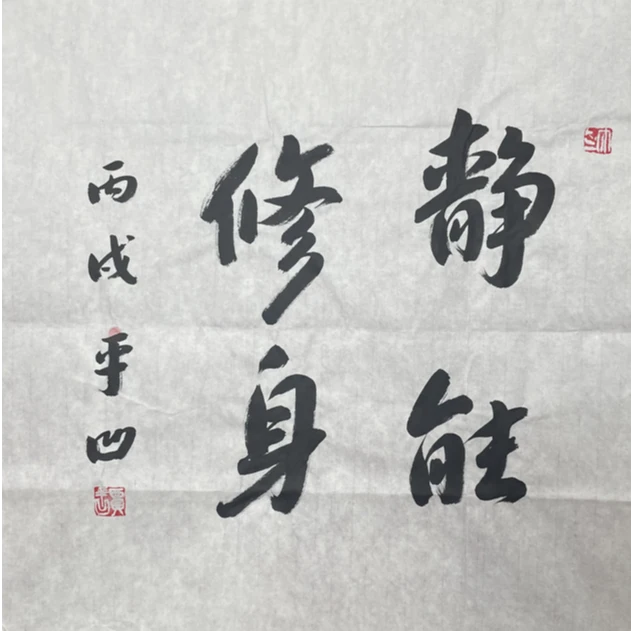 静能
修身
丙戌平凹